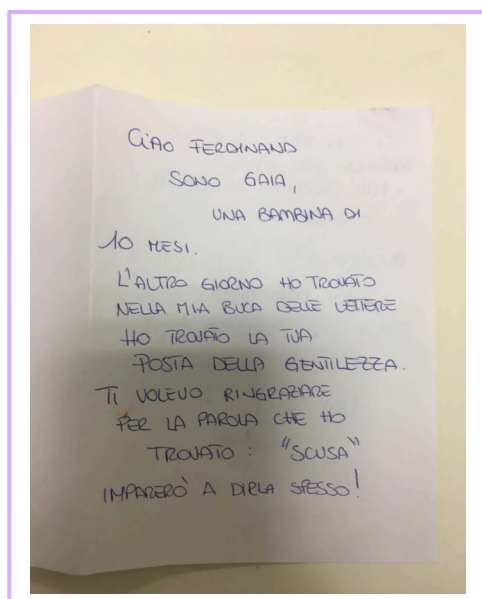 CIAO FERDINAND
SONO GAIA,
UNA BAMBINA DI
10 MESI.
L'ALTRO GIORNO HO TROVATO
NELLA MIA BUCA DELLE LETTERE
HO TROVATO LA TUA
POSTA DELLA GENTILEZZA.
TI VOLEVO RINGRAZIARE
PER LA PAROLA CHE HO
TROVATO: "SCUSA"
IMPARERÒ A DIRLA SPESSO!